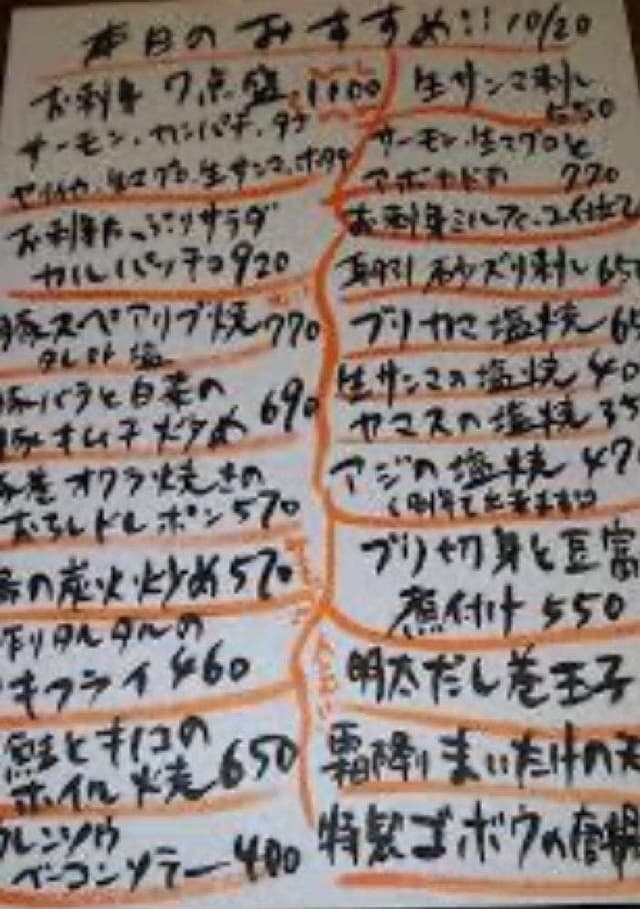 本日のおすすめ!! 10/20
お刺身 7点盛 1100
サーモン、カンパチ、タチ
ヤリイカ、生マグロ、生サンマ、ホタテ
お刺身たっぷりサラダ
カルパッチョ 920
豚スペアリブ焼 770
タレ 塩
豚バラと白菜の
豚キムチ炒め 690
豚巻オクラ焼きの
おろしドレポン 570
の炭火炒め 570
作りタルタルの
キフライ 460
鮭とキノコの
ホイル焼 650
レンソウ
ベーコンソテー 400
生サンマ刺し
550
サーモン、生マグロと
アボカドの 770
お刺身ミルフィーユ仕立て
朝引 砂ズリ刺し 65
ブリカマ塩焼 65
生サンマの塩焼 40
ヤマスの塩焼 35
アジの塩焼 47
ブリ切身と豆腐
煮付け 550
明太だし巻玉子
霜降りまいたけの天
特製ゴボウの唐揚